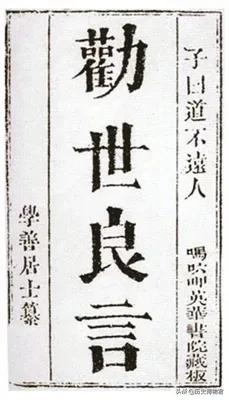 子曰道不遠人
嗎㕷呷英華書院藏板
勸世良言
學善居士纂
头条@历史傅物君